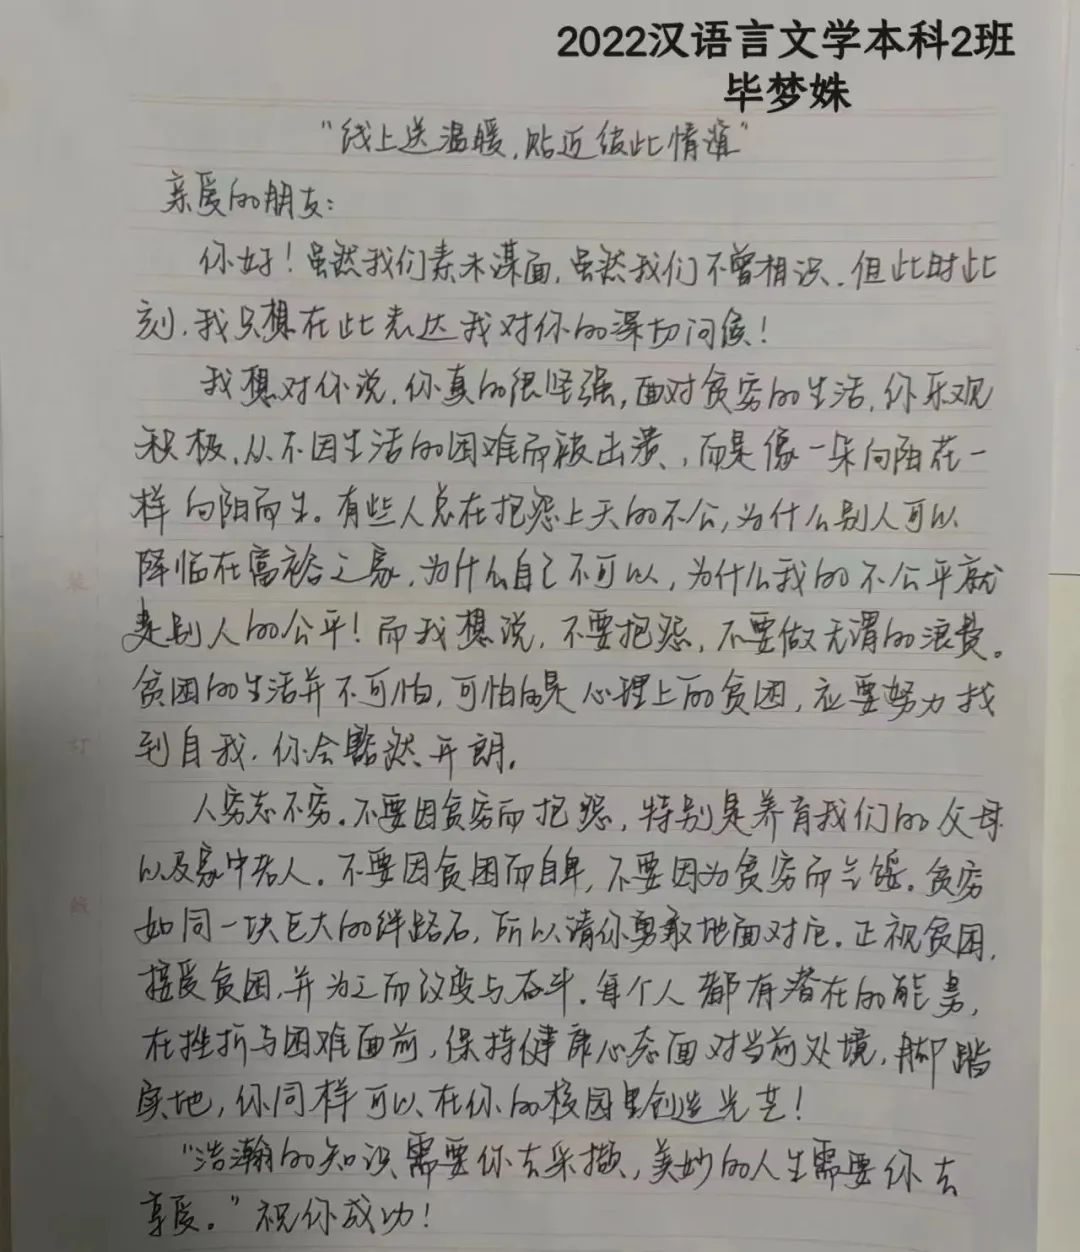 2022汉语言文学本科2班
毕梦姝
"线上送温暖,贴近彼此情谊"
亲爱的朋友:
你好!虽然我们素未谋面,虽然我们不曾相识.但此时此
刻,我只想在此表达我对你的深切问侯!
我想对你说,你真的很坚强,面对贫穷的生活,你乐观
积极,从不因生活的困难而被击溃,而是像一朵向阳花一
样向阳而生。有些人总在抱怨上天的不公,为什么别人可以
降临在富裕之家,为什么自己不可以,为什么我的不公平就
是别人的公平!而我想说,不要抱怨,不要做无谓的浪费。
贫困的生活并不可怕,可怕的是心理上的贫困,应要努力找
到自我,你会豁然开朗.
人穷志不穷.不要因贫穷而抱怨,特别是养育我们的父母
以及家中老人.不要因贫困而自卑,不要因为贫穷而气馁.贫穷
如同一块巨大的绊路石,所以请你勇敢地面对它.正视贫困,
接受贫困,并为之而改变与奋斗.每个人都有潜在的能量,
在挫折与困难面前,保持健康心态面对当前处境,脚踏
实地,你同样可以在你的校园里创造光芒!
"浩瀚的知识需要你去采撷,美妙的人生需要你去
享受。"祝你成功!
装
订
线